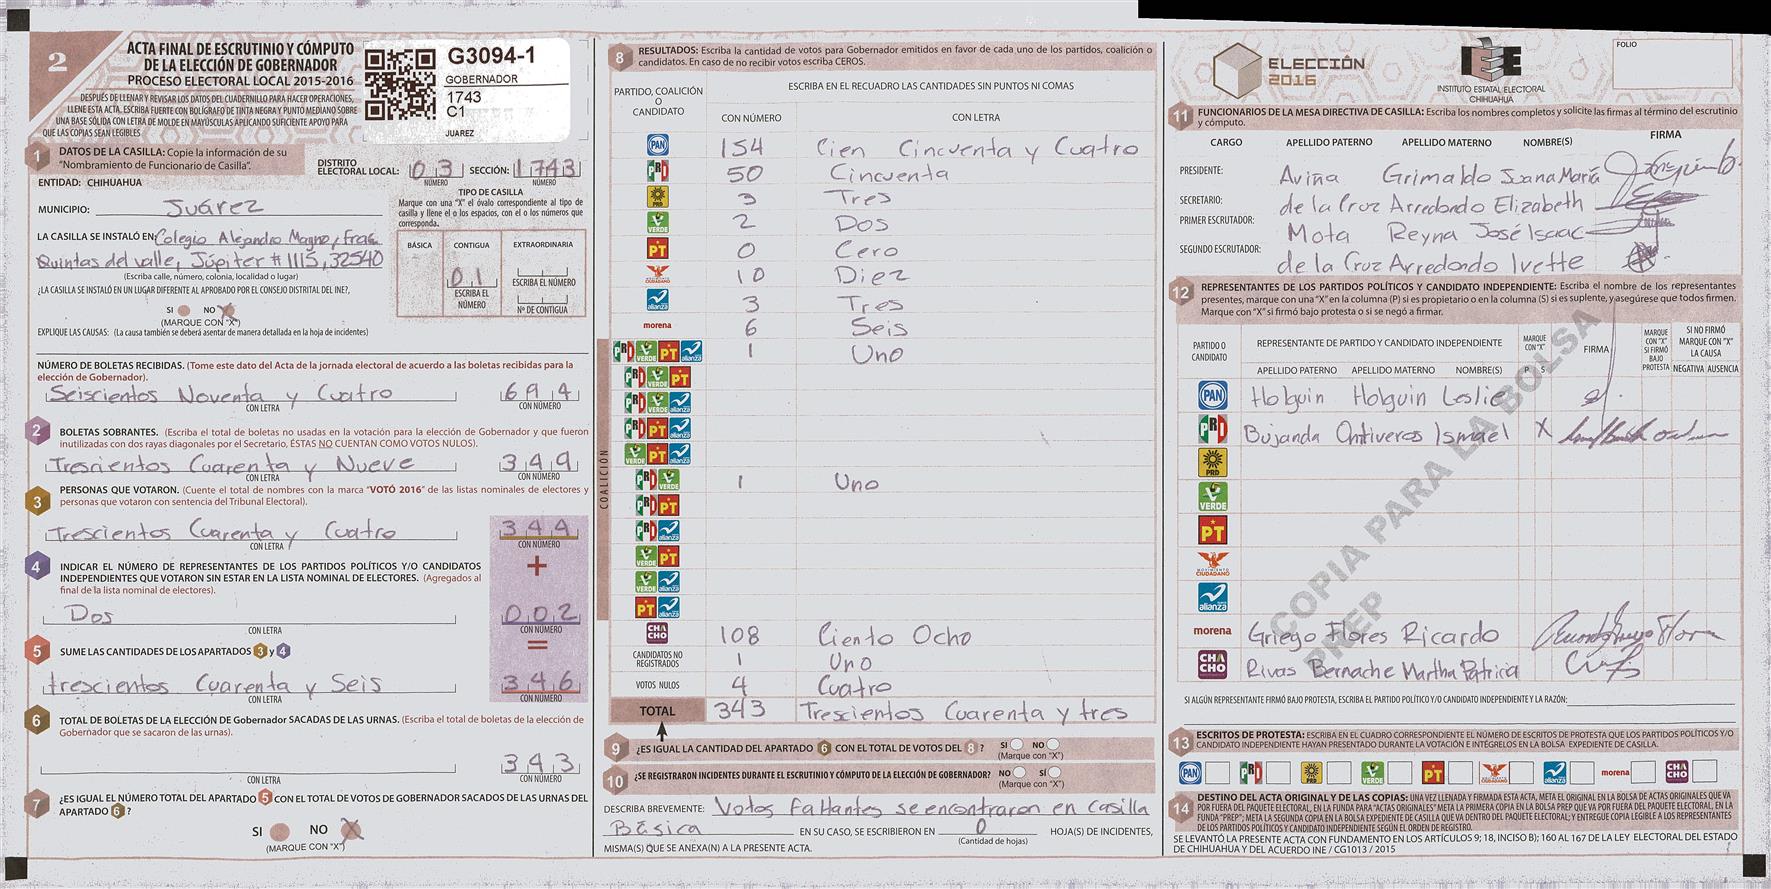 2
ACTA FINAL DE ESCRUTINIO Y CÓMPUTO
DE LA ELECCIÓN DE GOBERNADOR
PROCESO ELECTORAL LOCAL 2015-2016
DESPUÉS DE LLENAR Y REVISAR LOS DATOS DEL CUADERNILLO PARA HACER OPERACIONES,
LLENE ESTA ACTA. ESCRIBA FUERTE CON BOLÍGRAFO DE TINTA NEGRA Y PUNTO MEDIANO SOBRE
UNA BASE SÓLIDA CON LETRA DE MOLDE EN MAYÚSCULAS APLICANDO SUFICIENTE APOYO PARA
QUE LAS COPIAS SEAN LEGIBLES
G3094-1
GOBERNADOR
1743
C1
JUAREZ
1 DATOS DE LA CASILLA: Copie la información de su
"Nombramiento de Funcionario de Casilla".
DISTRITO ELECTORAL LOCAL: 03 SECCIÓN: 1743
NÚMERO NÚMERO
ENTIDAD: CHIHUAHUA
MUNICIPIO: Juárez
LA CASILLA SE INSTALÓ EN: Colegio Alejandro Magno, Frac.
Quintas del valle, Júpiter #1115, 32540
(Escriba calle, número, colonia, localidad o lugar)
¿LA CASILLA SE INSTALÓ EN UN LUGAR DIFERENTE AL APROBADO POR EL CONSEJO DISTRITAL DEL INE?,
SI NO X
(MARQUE CON "X")
EXPLIQUE LAS CAUSAS: (La causa también se deberá asentar de manera detallada en la hoja de incidentes)
TIPO DE CASILLA
Marque con una "X" el óvalo correspondiente al tipo de
casilla y llene el o los espacios, con el o los números que
corresponda.
BÁSICA CONTIGUA EXTRAORDINARIA
01
ESCRIBA EL NÚMERO
ESCRIBA EL NÚMERO
Nº DE CONTIGUA
NÚMERO DE BOLETAS RECIBIDAS. (Tome este dato del Acta de la jornada electoral de acuerdo a las boletas recibidas para la
elección de Gobernador).
Seiscientos Noventa y Cuatro 694
CON LETRA CON NÚMERO
2 BOLETAS SOBRANTES. (Escriba el total de boletas no usadas en la votación para la elección de Gobernador y que fueron
inutilizadas con dos rayas diagonales por el Secretario, ÉSTAS NO CUENTAN COMO VOTOS NULOS).
Trescientos Cuarenta y Nueve 349
CON LETRA CON NÚMERO
3 PERSONAS QUE VOTARON. (Cuente el total de nombres con la marca "VOTÓ 2016" de las listas nominales de electores y
personas que votaron con sentencia del Tribunal Electoral).
Trescientos Cuarenta y Cuatro 344
CON LETRA CON NÚMERO
4 INDICAR EL NÚMERO DE REPRESENTANTES DE LOS PARTIDOS POLÍTICOS Y/O CANDIDATOS
INDEPENDIENTES QUE VOTARON SIN ESTAR EN LA LISTA NOMINAL DE ELECTORES. (Agregados al
final de la lista nominal de electores).
+
Dos 002
CON LETRA CON NÚMERO
=
5 SUME LAS CANTIDADES DE LOS APARTADOS 3 y 4
trescientos Cuarenta y Seis 346
CON LETRA CON NÚMERO
6 TOTAL DE BOLETAS DE LA ELECCIÓN DE Gobernador SACADAS DE LAS URNAS. (Escriba el total de boletas de la elección de
Gobernador que se sacaron de las urnas).
343
CON LETRA CON NÚMERO
7 ¿ES IGUAL EL NÚMERO TOTAL DEL APARTADO 5 CON EL TOTAL DE VOTOS DE GOBERNADOR SACADOS DE LAS URNAS DEL
APARTADO 6?
SI NO X
(MARQUE CON "X")
8 RESULTADOS: Escriba la cantidad de votos para Gobernador emitidos en favor de cada uno de los partidos, coalición o
candidatos. En caso de no recibir votos escriba CEROS.
PARTIDO, COALICIÓN O CANDIDATO
ESCRIBA EN EL RECUADRO LAS CANTIDADES SIN PUNTOS NI COMAS
CON NÚMERO CON LETRA
PAN 154 Cien Cincuenta y Cuatro
PRD 50 Cincuenta
PRD 3 Tres
VERDE 2 Dos
PT 0 Cero
10 Diez
alianza 3 Tres
morena 6 Seis
COALICIÓN
PRD VERDE PT alianza 1 Uno
PRD VERDE PT
PRD VERDE alianza
PRD PT alianza
VERDE PT alianza
PRD VERDE 1 Uno
PRD PT
PRD alianza
VERDE PT
VERDE alianza
PT alianza
CHACHO 108 Ciento Ocho
CANDIDATOS NO REGISTRADOS 1 Uno
VOTOS NULOS 4 Cuatro
TOTAL 343 Trescientos Cuarenta y tres
9 ¿ES IGUAL LA CANTIDAD DEL APARTADO 6 CON EL TOTAL DE VOTOS DEL 8? SI NO
(Marque con "X")
10 ¿SE REGISTRARON INCIDENTES DURANTE EL ESCRUTINIO Y CÓMPUTO DE LA ELECCIÓN DE GOBERNADOR? NO SÍ
(Marque con "X")
DESCRIBA BREVEMENTE: Votos faltantes se encontraron en Casilla
Básica EN SU CASO, SE ESCRIBIERON EN 0 HOJA(S) DE INCIDENTES,
(Cantidad de hojas)
MISMA(S) QUE SE ANEXA(N) A LA PRESENTE ACTA.
ELECCIÓN
2016
IEE
INSTITUTO ESTATAL ELECTORAL
CHIHUAHUA
FOLIO
11 FUNCIONARIOS DE LA MESA DIRECTIVA DE CASILLA: Escriba los nombres completos y solicite las firmas al término del escrutinio
y cómputo.
CARGO APELLIDO PATERNO APELLIDO MATERNO NOMBRE(S) FIRMA
PRESIDENTE: Aviña Grimaldo Juana María
SECRETARIO: de la Cruz Arredondo Elizabeth
PRIMER ESCRUTADOR: Mota Reyna José Isaac
SEGUNDO ESCRUTADOR: de la Cruz Arredondo Ivette
12 REPRESENTANTES DE LOS PARTIDOS POLÍTICOS Y CANDIDATO INDEPENDIENTE: Escriba el nombre de los representantes
presentes, marque con una "X" en la columna (P) si es propietario o en la columna (S) si es suplente, y asegúrese que todos firmen.
Marque con "X" si firmó bajo protesta o si se negó a firmar.
PARTIDO O CANDIDATO
REPRESENTANTE DE PARTIDO Y CANDIDATO INDEPENDIENTE
MARQUE CON "X"
FIRMA
MARQUE CON "X" SI FIRMÓ BAJO PROTESTA
SI NO FIRMÓ MARQUE CON "X" LA CAUSA
APELLIDO PATERNO APELLIDO MATERNO NOMBRE(S) P S NEGATIVA AUSENCIA
PAN Holguin Holguin Leslie
PRD Bujanda Ontiveros Ismael X
PRD
VERDE
PT
MOVIMIENTO CIUDADANO
alianza
morena Griego Flores Ricardo
CHACHO Rivas Bernache Martha Patricia
COPIA PARA LA BOLSA
PREP
SI ALGÚN REPRESENTANTE FIRMÓ BAJO PROTESTA, ESCRIBA EL PARTIDO POLÍTICO Y/O CANDIDATO INDEPENDIENTE Y LA RAZÓN:
13 ESCRITOS DE PROTESTA: ESCRIBA EN EL CUADRO CORRESPONDIENTE EL NÚMERO DE ESCRITOS DE PROTESTA QUE LOS PARTIDOS POLÍTICOS Y/O
CANDIDATO INDEPENDIENTE HAYAN PRESENTADO DURANTE LA VOTACIÓN E INTÉGRELOS EN LA BOLSA EXPEDIENTE DE CASILLA.
PAN PRD PRD VERDE PT alianza morena CHACHO
14 DESTINO DEL ACTA ORIGINAL Y DE LAS COPIAS: UNA VEZ LLENADA Y FIRMADA ESTA ACTA, META EL ORIGINAL EN LA BOLSA DE ACTAS ORIGINALES QUE VA
POR FUERA DEL PAQUETE ELECTORAL, EN LA FUNDA PARA "ACTAS ORIGINALES" META LA PRIMERA COPIA EN LA BOLSA PREP QUE VA POR FUERA DEL PAQUETE ELECTORAL, EN LA
FUNDA "PREP"; META LA SEGUNDA COPIA EN LA BOLSA EXPEDIENTE DE CASILLA QUE VA DENTRO DEL PAQUETE ELECTORAL; Y ENTREGUE COPIA LEGIBLE A LOS REPRESENTANTES
DE LOS PARTIDOS POLÍTICOS Y CANDIDATO INDEPENDIENTE SEGÚN EL ORDEN DE REGISTRO.
SE LEVANTÓ LA PRESENTE ACTA CON FUNDAMENTO EN LOS ARTÍCULOS 9; 18, INCISO B); 160 AL 167 DE LA LEY ELECTORAL DEL ESTADO
DE CHIHUAHUA Y DEL ACUERDO INE / CG1013 / 2015